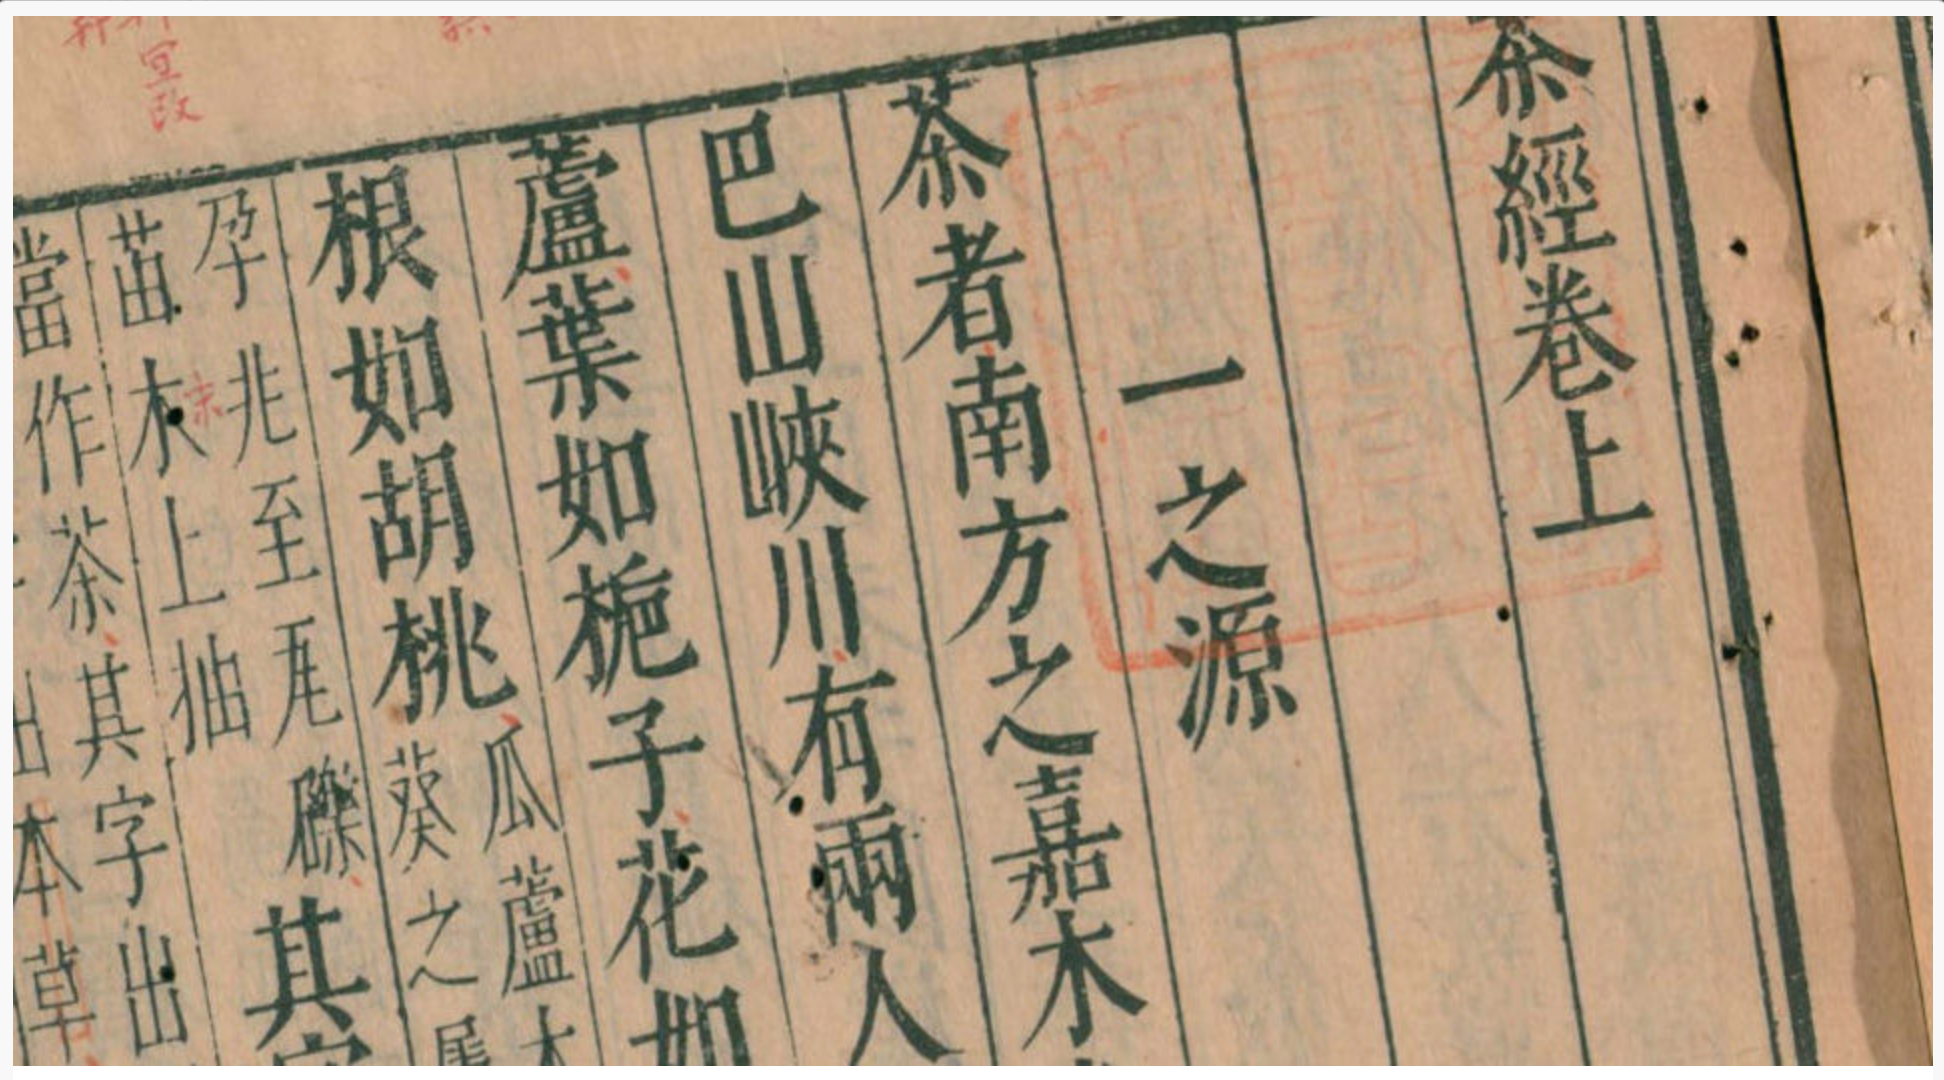 茶經卷上
一之源
茶者南方之嘉木
巴山峽川有兩人
蘆葉如梔子花如
根如胡桃
瓜蘆木
葵之
其
孕兆至瓦礫
苗木上抽
其字出
當作茶
本草
宜改